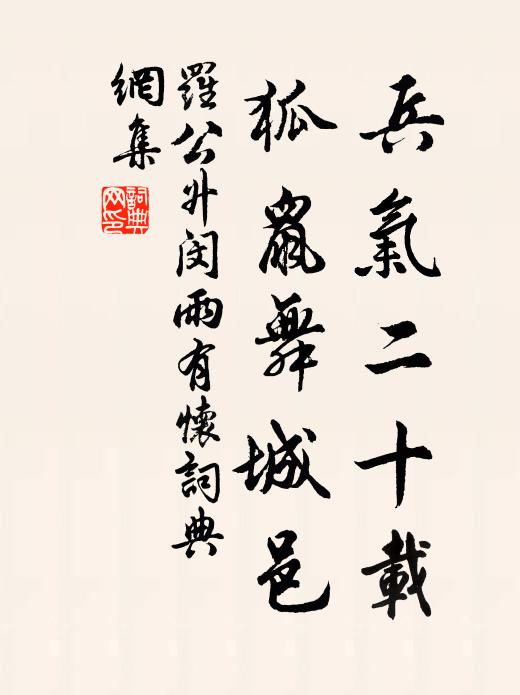 兵氣二十載
狐鼠舞城邑
羅公升閔雨有懷詞典
網集
詞典网印